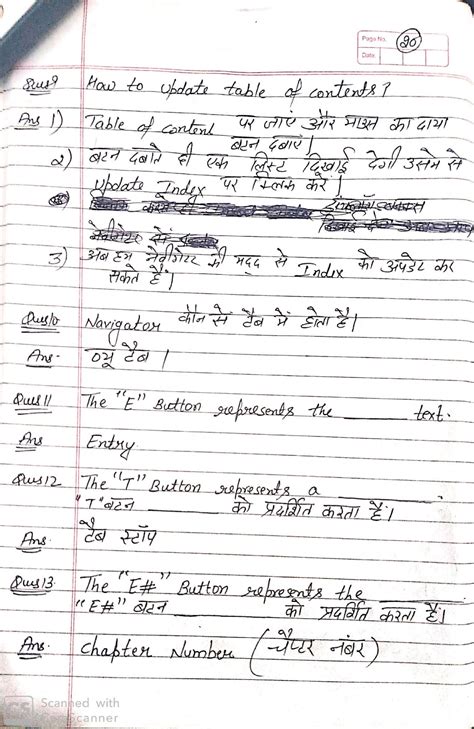 Page No. 20
Date
Ques9 How to update table of contents?
Ans 1) Table of content पर जाएं और माउस का दाया
बटन दबाएं।
2) बटन दबाते ही एक लिस्ट दिखाई देगी उसमें से
Update Index पर क्लिक करें।
3) अब हम नेवीगेटर की मदद से Index को अपडेट कर
सकते हैं।
Ques10 Navigator कौन से टैब में होता है।
Ans- व्यू टैब।
Ques11 The "E" Button represents the ______ text.
Ans Entry
Ques12 The "T" Button represents a ______.
"T" बटन ______ को प्रदर्शित करता है।
Ans. टैब स्टॉप
Ques13. The "E#" Button represents the ______
"E#" बटन ______ को प्रदर्शित करता है।
Ans. Chapter Number (चैप्टर नंबर)
CS Scanned with
CamScanner